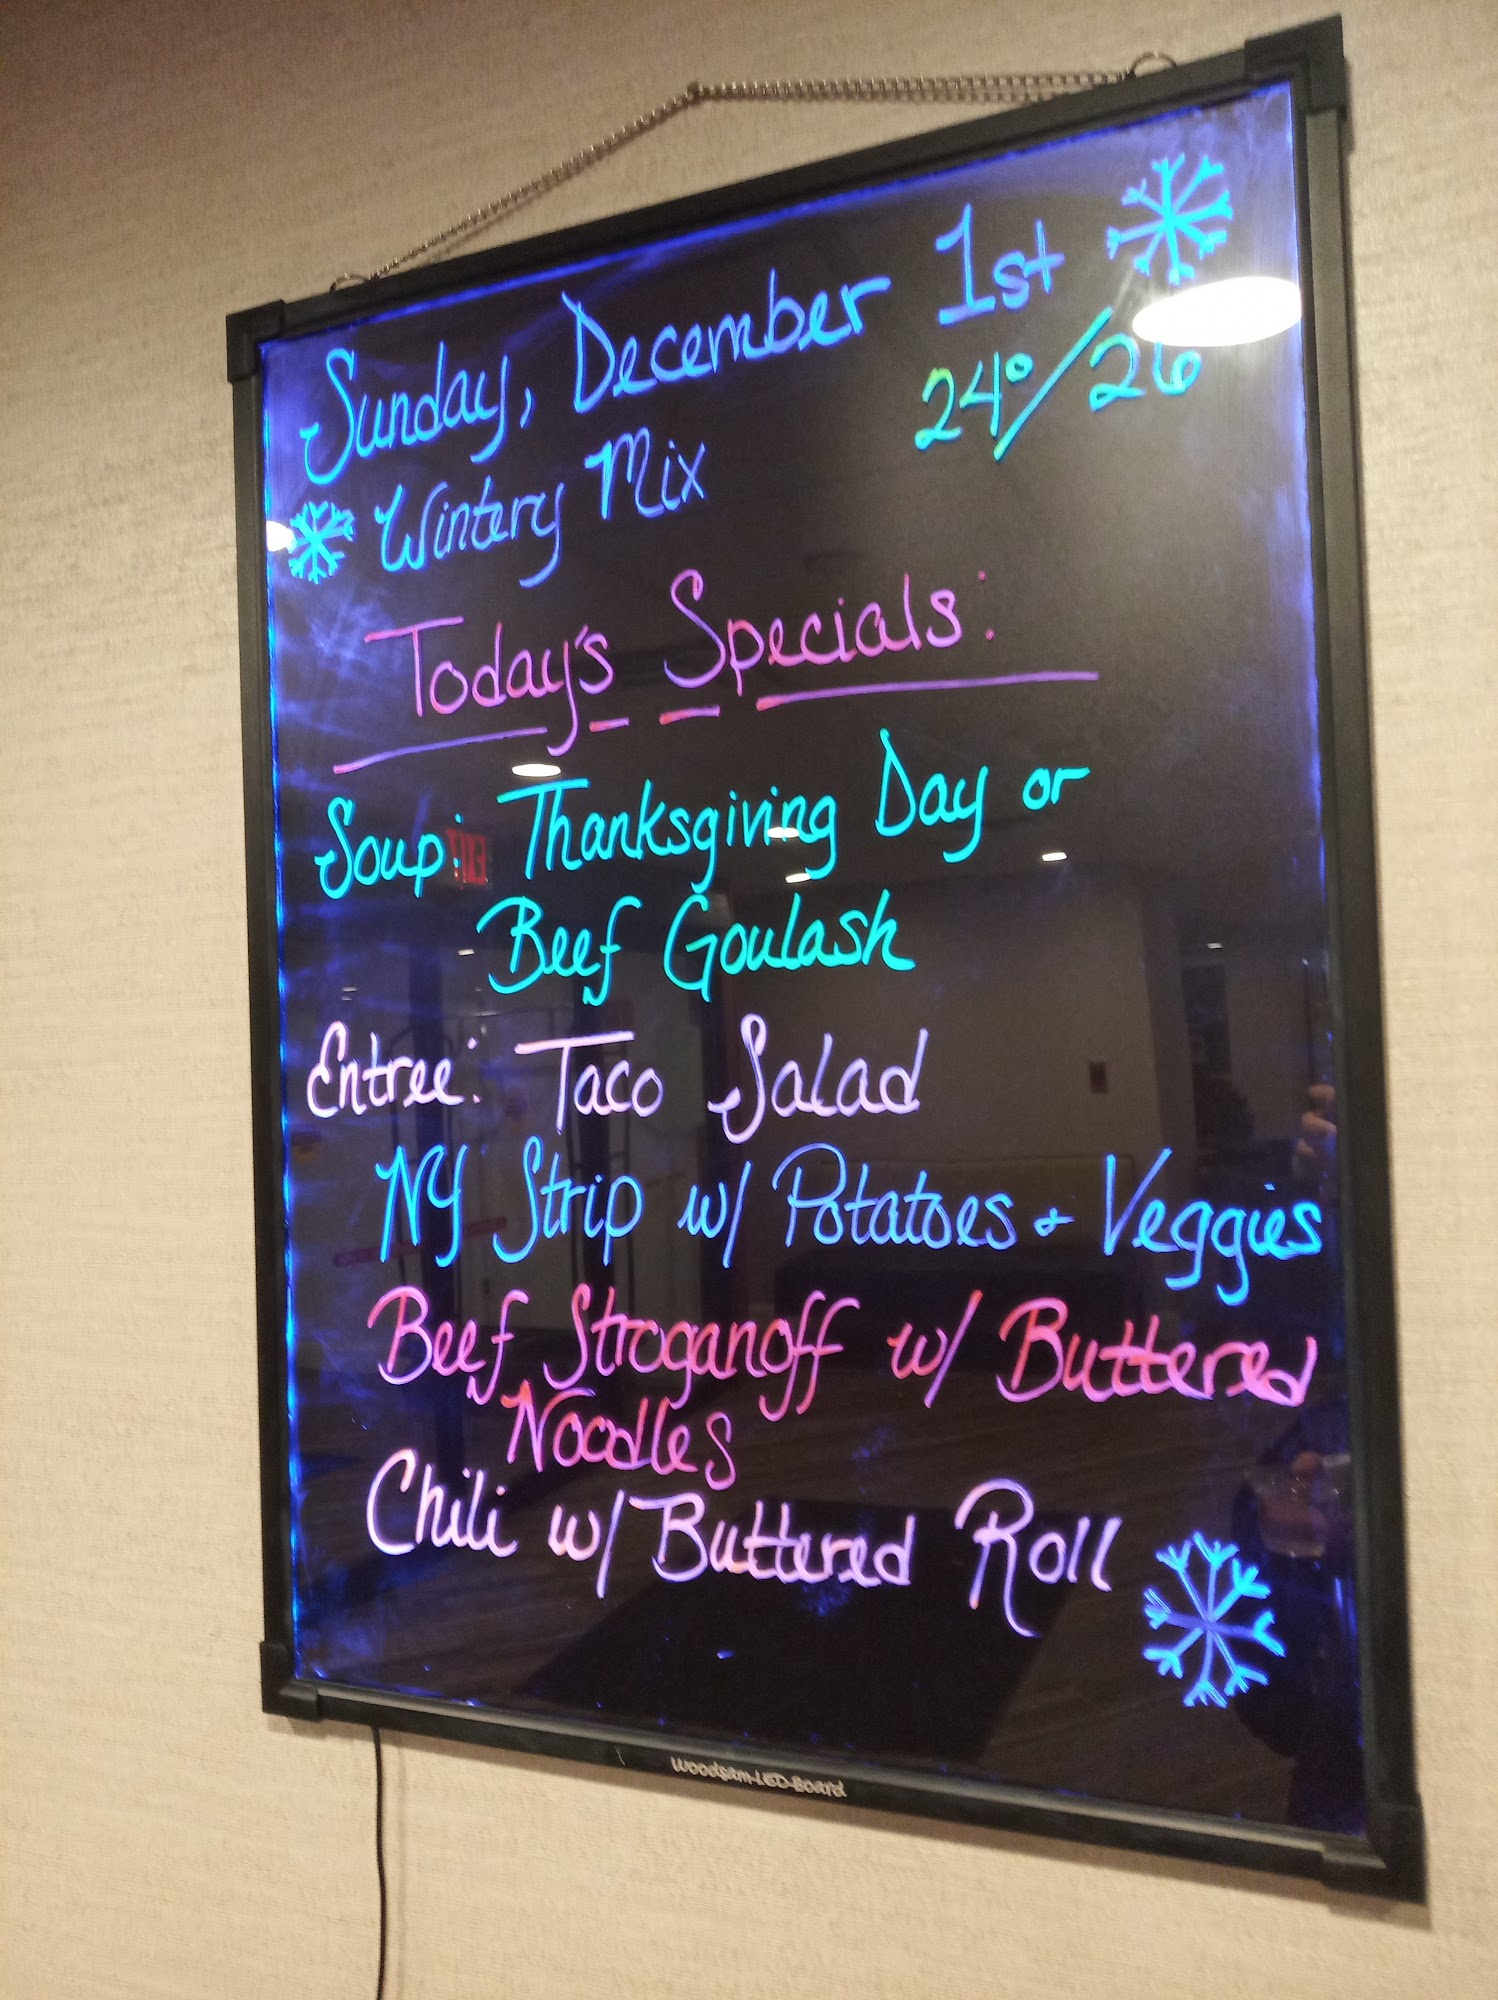 Sunday, December 1st
24°/26
Wintery Mix
Today's Specials:
Soup: Thanksgiving Day or
Beef Goulash
Entree: Taco Salad
NY Strip w/ Potatoes + Veggies
Beef Stroganoff w/ Buttered
Noodles
Chili w/ Buttered Roll
Woodsam-LED-Board